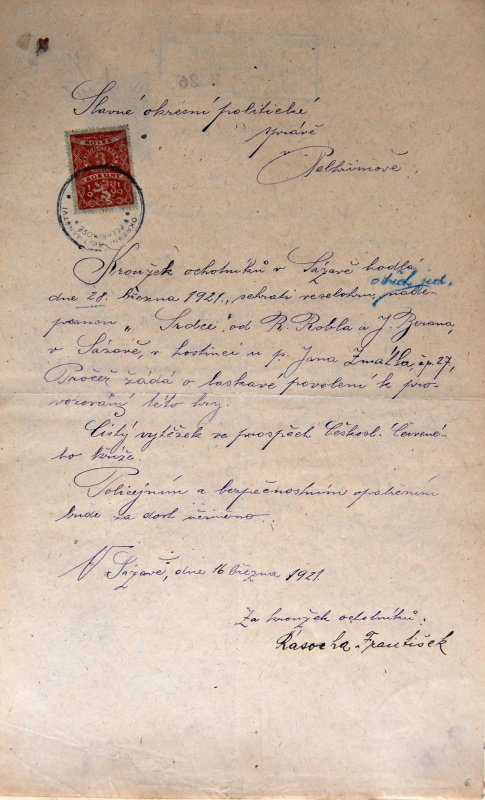 Slavné okresní politické
správě
Pelhřimově.
KOLEK
3
KORUNY
Kroužek ochotníků v Sázavě hodlá
obch. jed.
dne 28. března 1921, sehrati veselohru, nade-
psanou „Srdce" od R. Robla a J. Berana,
v Sázavě, v hostinci u p. Jana Zmátla, čp. 27,
Pročež žádá o laskavé povolení k pro-
vozování této hry.
Čistý výtěžek ve prospěch Českosl. Červené-
ho kříže.
Policejním a bezpečnostním opatřením
bude za dost učiněno.
V Sázavě, dne 16 března 1921.
Za kroužek ochotníků:
Rásocha František
6